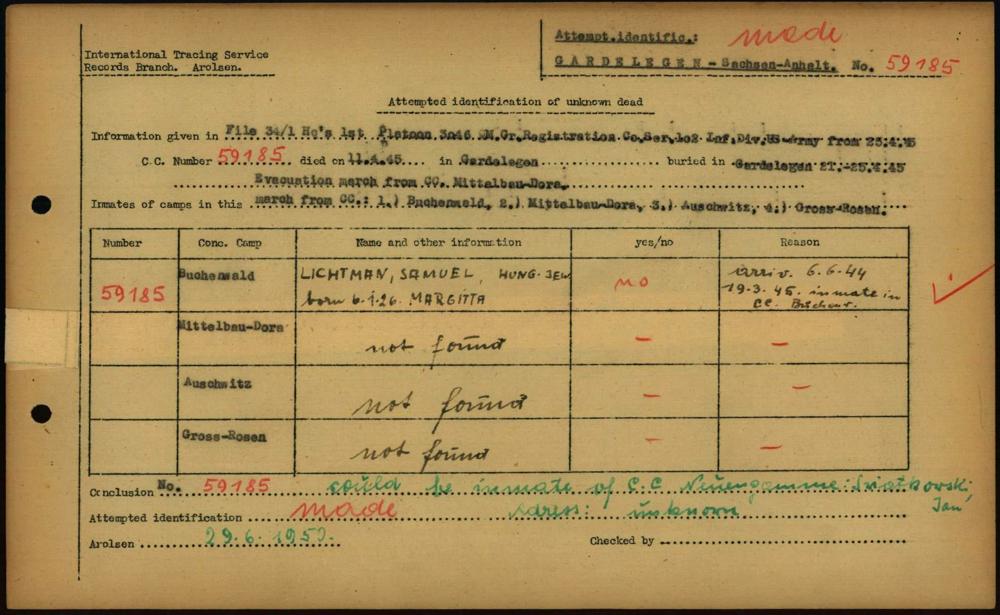 International Tracing Service
Records Branch. Arolsen.
Attempt.identific.: made
GARDELEGEN - Sachsen-Anhalt. No. 59185
Attempted identification of unknown dead
Information given in File 34/1 Hq's 1st Platoon 3046 QM.Gr.Registration.Co.Ser.102 Inf.Div.US-Army from 25.4.45
C.C. Number 59185 died on 11.4.45 in Gardelegen buried in Gardelegen 21.-25.4.45
Evacuation march from CC. Mittelbau-Dora.
Inmates of camps in this march from CC.: 1.) Buchenwald, 2.) Mittelbau-Dora, 3.) Auschwitz, 4.) Gross-Rosen.
Number Conc. Camp Name and other information yes/no Reason
59185 Buchenwald LICHTMAN, SAMUEL, HUNG-JEW no arriv. 6.6.44
born 6.1.26. MARGITTA 19.3.45. inmate in
CC. Buchenw.
Mittelbau-Dora not found - -
Auschwitz not found - -
Gross-Rosen not found - -
Conclusion No. 59185 could be inmate of C.C Neuengamme: Swiatkowski,
Jan
Attempted identification made Adress: unknown
Arolsen 29.6.1950.
Checked by -